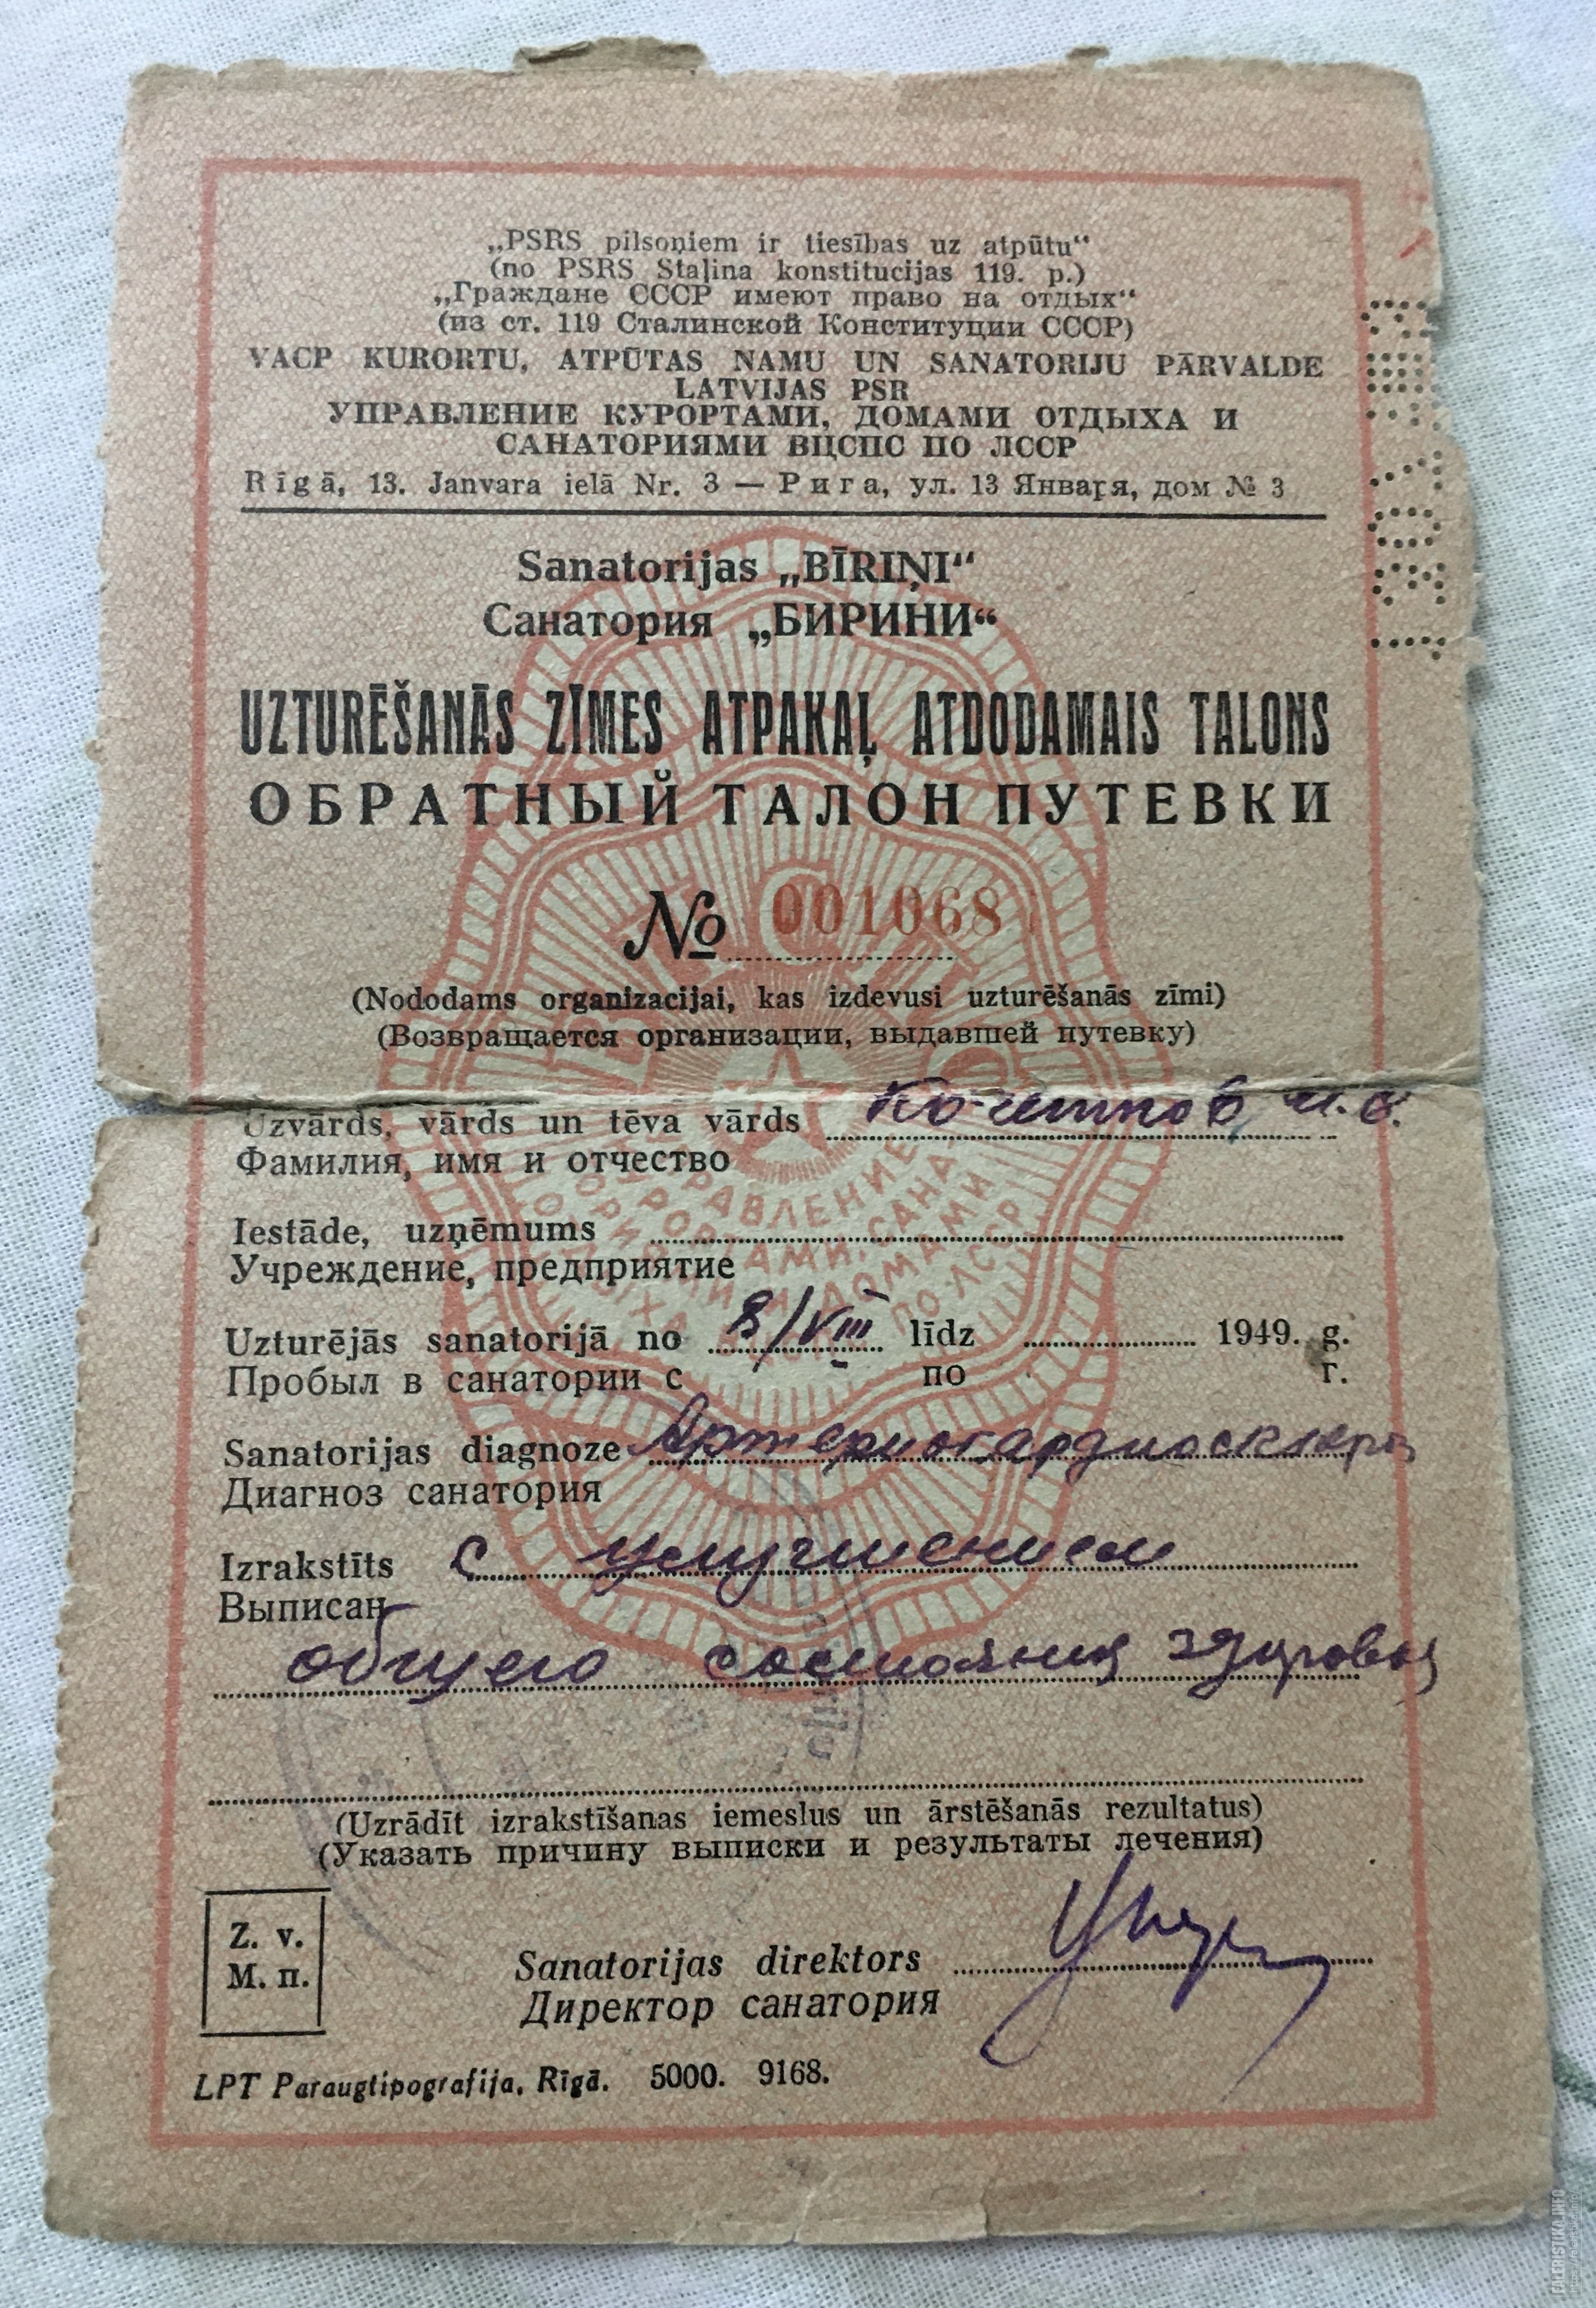 „PSRS pilsoņiem ir tiesības uz atpūtu“
(no PSRS Staļina konstitucijas 119. p.)
„Граждане СССР имеют право на отдых“
(из ст. 119 Сталинской Конституции СССР)
VACP KURORTU, ATPŪTAS NAMU UN SANATORIJU PĀRVALDE
LATVIJAS PSR
УПРАВЛЕНИЕ КУРОРТАМИ, ДОМАМИ ОТДЫХА И
САНАТОРИЯМИ ВЦСПС ПО ЛССР
Rīgā, 13. Janvara ielā Nr. 3 — Рига, ул. 13 Января, дом № 3
Sanatorijas „BĪRIŅI“
Санатория „БИРИНИ“
UZTURĒŠANĀS ZĪMES ATPAKAĻ ATDODAMAIS TALONS
ОБРАТНЫЙ ТАЛОН ПУТЕВКИ
№ 001068
(Nododams organizacijai, kas izdevusi uzturēšanās zīmi)
(Возвращается организации, выдавшей путевку)
Uzvārds, vārds un tēva vārds
Фамилия, имя и отчество
Iestāde, uzņēmums
Учреждение, предприятие
Uzturējās sanatorijā no 8/VIII līdz 1949. g.
Пробыл в санатории с по г.
Sanatorijas diagnoze Артериокардиосклероз
Диагноз санатория
Izrakstīts с улучшением
Выписан
общего состояния здоровья
(Uzrādīt izrakstīšanas iemeslus un ārstēšanās rezultatus)
(Указать причину выписки и результаты лечения)
Z. v.
М. п.
Sanatorijas direktors
Директор санатория
LPT Paraugtipografija, Rīgā. 5000. 9168.
FALERISTIKA.INFO